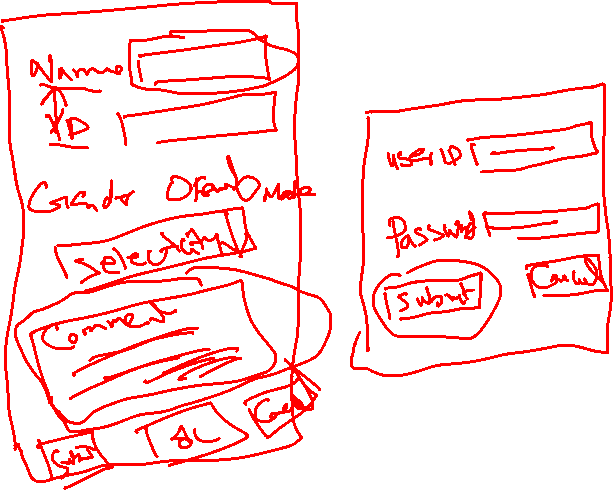 Name
ID
Gender Female Male
Select City
Comment
Submit
Cancel
user ID
Password
Submit Cancel